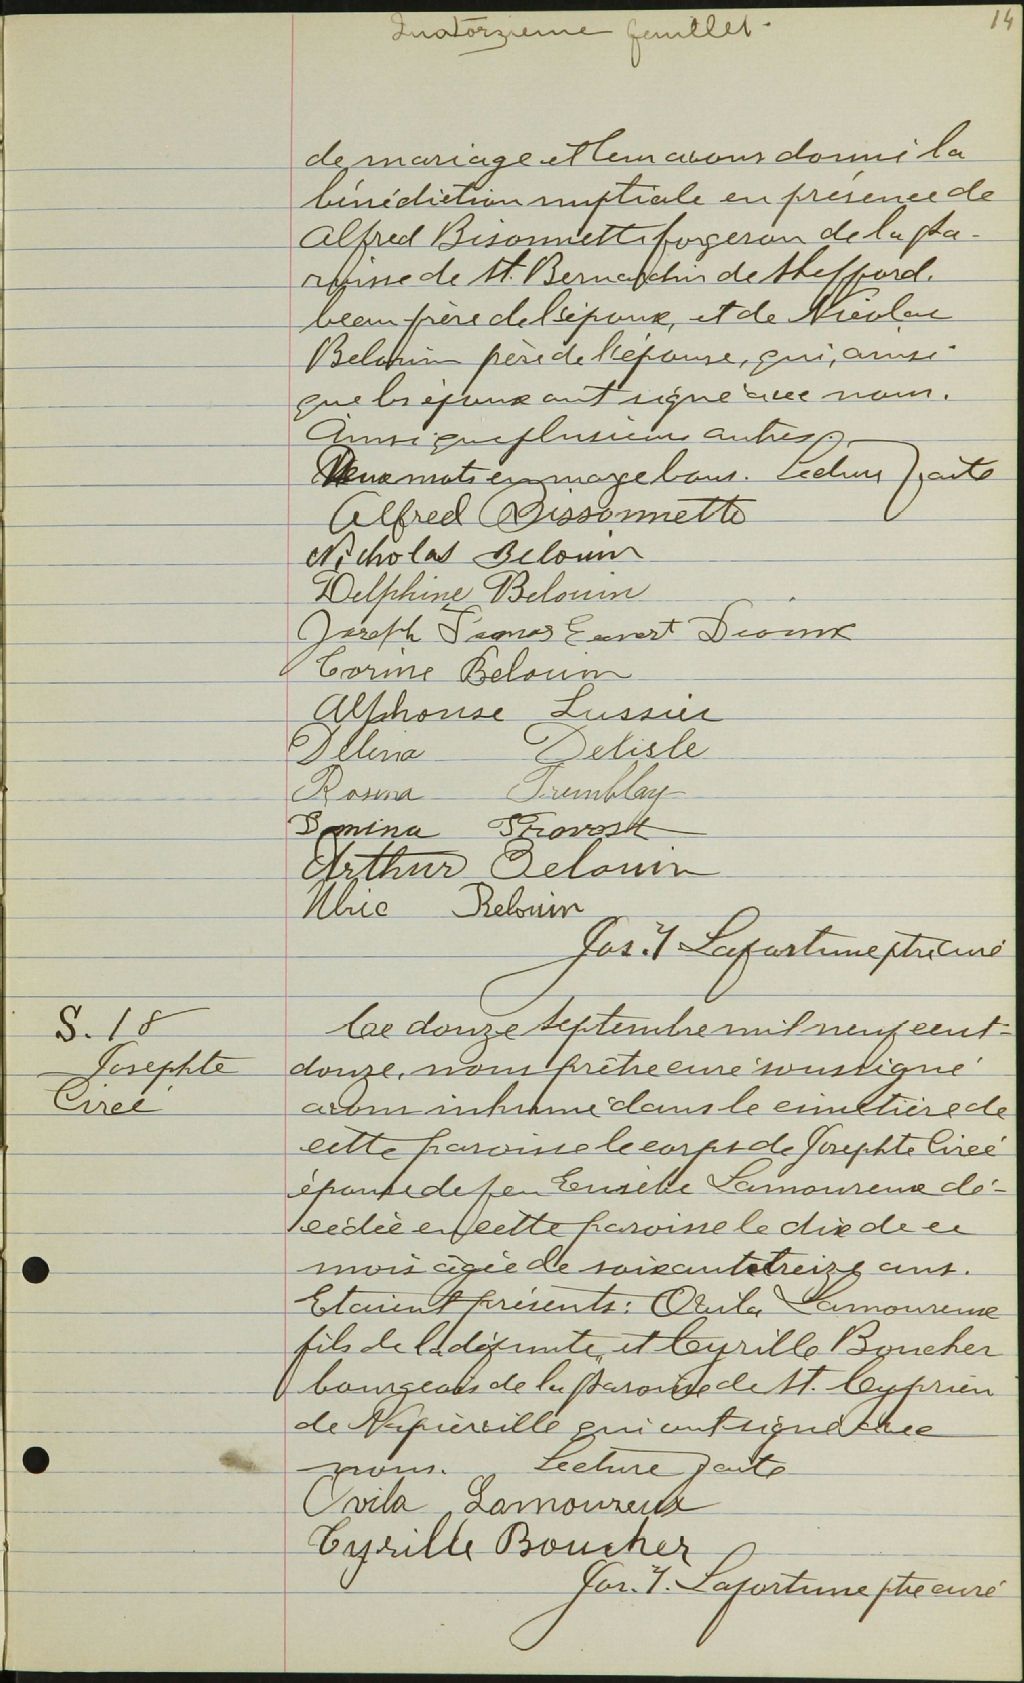 Quatorzieme feuillet.
14
de mariage et leur avons donné la
bénédiction nuptiale en présence de
Alfred Bisonnette forgeron de la pa-
roisse de St. Bernardin de Shefford.
beau frère de l'époux, et de Nicolas
Belouin père de l'épouse, qui, ainsi
que les époux ont signé avec nous.
Ainsi que plusieurs autres.
Deux mots en marge bons. Lecture faite
Alfred Bissonnette
Nicholas Belouin
Delphine Belouin
Joseph Dioux
Corine Belouin
Alphonse Lussier
Délina Delisle
Rosina Tremblay
Provost
Arthur Belouin
Ulric Belouin
Jos. Y Lafortune ptre curé
S. 18
Josephte
Cireé
Ce douze septembre mil neuf cent-
douze, nous prêtre curé soussigné
avons inhumé dans le cimetière de
cette paroisse le corps de Josephte Cireé
épouse de feu Eusèbe Lamoureux dé-
cédée en cette paroisse le dix de ce
mois âgée de soixante treize ans.
Etaient présents: Ovila Lamoureux
fils de la défunte, et Cyrille Boucher
bourgeois de la paroisse de St. Cyprien
de Napierville qui ont signé avec
nous. Lecture faite
Ovila Lamoureux
Cyrille Boucher
Jos. Y. Lafortune ptre curé